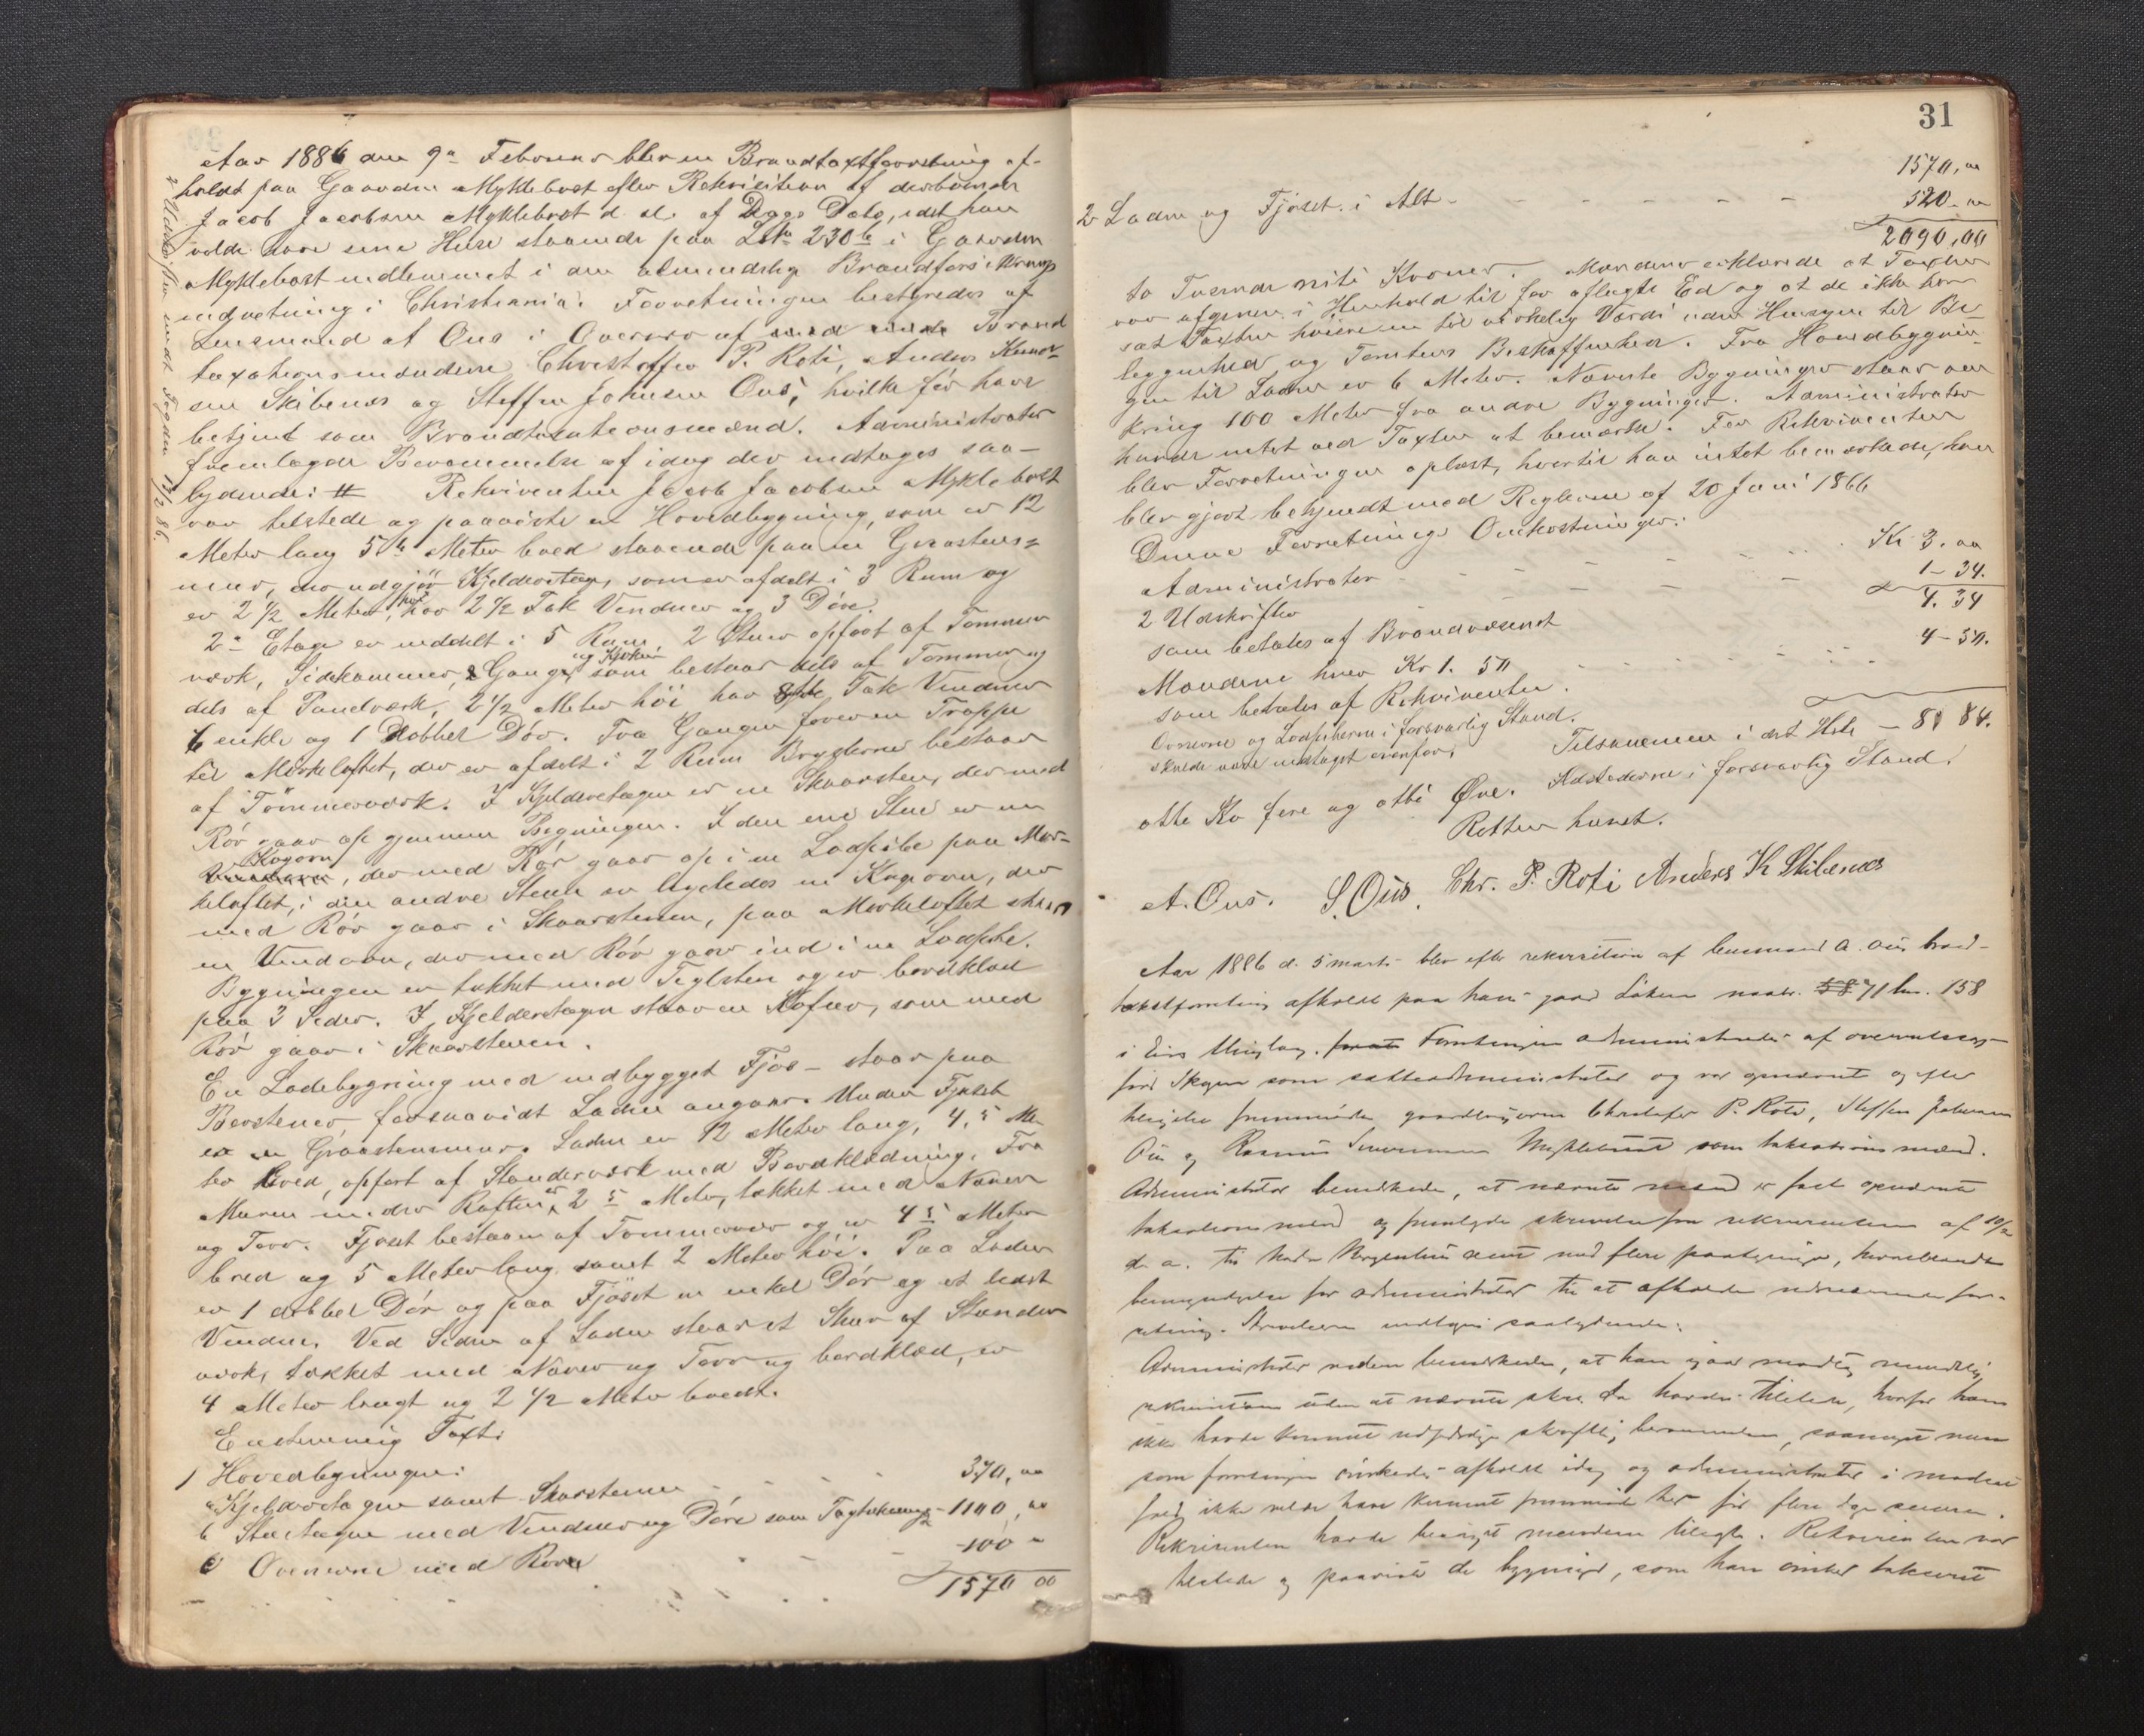 Aar 1886 den 9de Februar blev en Brandtaxtforretning af-
holdt paa Gaarden Myklebost efter Rekvisition af
Jacob Jacobsen Myklebost d. d. af Dags Dato, idet han
vilde have sine Huse staaende paa 230 b i Gaarden
Myklebost indlemmet i den almindelige Brandforsikrings
indretning i Christiania. Forretningen bestyredes af
Lensmand A. Ous i Overvær af Brand
taxationsmændene Christoffer P. Roti, Anders Knud-
sen Skibenes og Steffen Johnsen Ous, hvilke før have
betjent som Brandtaxationsmænd. Administrator
fremlagde Berammelse af idag der indtages saa-
lydende: # Rekvirenten Jacob Jacobsen Myklebost
var tilstede og paaviste en Hovedbygning, som er 12
Meter lang 5 Meter bred staaende paa en Graastens-
muur, der udgjør Kjelderetage, som er afdelt i 3 Rum og
er 2 1/2 Meter høi, har 2 1/2 Fak Vinduer og 3 Døre.
2den Etage er inddelt i 5 Rum, 2 Stuer opført af Tømmer
værk, Sidekammer, Gang og Kjøken som bestaar dels af Tømmer og
dels af Panelværk, 2 1/2 Meter høi har Fak Vinduer
6 enkle og 1 dobbel Dør. Fra Gangen fører en Trappe
til Mørkeloftet, der er afdelt i 2 Rum Brysterne bestaar
af Tømmerværk. I Kjelderetagen er en Skaarsten, der med
Rør gaar op gjennem Bygningen. I den ene Stue er en
Kogovn, der med Rør gaar op i en Lodpibe paa Mør-
keloftet, i den anden Stue er ligeledes en Kogeovn, der
med Rør gaar i Skaarstenen, paa Mørkeloftet staar
en Vindovn, der med Rør gaar ind i en Lodpibe.
Bygningen er tækket med Teglsten og er bordklæd
paa 3 Sider. I Kjelderetagen staar en Kofner, som med
Rør gaar i Skaarstenen.
En Ladebygning med indbygget Fjøs - staar paa
forsaavidt Laden angaar. Under Fjøset
er en Graastensmur. Laden er 12 Meter lang, 4,5 Me-
ter bred, opført af Stenderværk med Bordklædning. Fra
Muren under Raften er 2,5 Meter, tækket med Næver
og Torv. Fjøset bestaar af Tømmerværk og er 4,5 Meter
bred og 5 Meter lang samt 2 Meter høi. Paa Laden
er 1 dobbel Dør og paa Fjøset en enkel Dør og et lidet
Vindue. Ved Siden af Laden staar et Skur af Stænder
værk, tækket med Næver og Torv og bordklæd, er
4 Meter langt og 2 1/2 Meter bredt.
Enstemmig Taxt:
1 Hovedbygningen:
a Kjelderetagen samt Skarstenen 370,00
b Stueetagen med Vinduer og Døre som Tagtækning - 1100,00
c Ovnerne med Rør - 100 "
1570 00
2 Udskrifter sendt Fogden 12/2 86.
31
1570,00
2 Laden og Fjøset i Alt - 520.00
2090,00
to Tusinde niti Kroner. Mændene erklærede at Taxten
var afgiven i Henhold til før aflagte Ed og at de ikke har
sat Taxten høiere end til virkelig Værdi uden Hensyn til Be-
liggenhed og Tomtens Beskaffenhed. Fra Hovedbygnin-
gen til Laden er 6 Meter. Nævnte Bygninger staar om
kring 100 Meter fra andre Bygninger. Administrator
havde intet ved Taxten at bemærke. For Rekvirenten
blev Forretningen oplæst, hvortil han intet bemærkede, han
blev gjort bekjendt med Reglerne af 20 Juni 1866
Denne Forretnings Omkostninger:
Administrator Kr 3.00
2 Udskrifter 1 - 34.
som betales af Brandvæsenet 4. 34
Mændene hver Kr 1. 50 4 - 50.
som betales af Rekvirenten.
Ovnerne og Lodpiberne i forsvarlig Stand.
skulde være indtaget ovenfor. Tilsammen i det Hele - 8 84.
otte Kr fire og otti Øre. Ildstederne i forsvarlig Stand.
Retten hævet.
A. Ous. S. Ous. Chr. P. Roti Anders K Skibenæs
Aar 1886 d. 5 marts blev efter rekvisition af lensmand A. Ous brand-
takstforretning afholdt paa hans gaard Løken matr. 71 lnr. 158
i Eids thinglag. Forretningen administreredes af overretssag-
fører som sætteadministrator og var opnævnt og efter
fremmødte gaardbrugerne Christofer P. Roti, Steffen Johnsen
Ous og Rasmus Myklebust som taksationsmænd.
Administrator bemærkede, at nævnte mænd er fast opnævnte
taksationsmænd og fremlagde skrivelse fra rekvirenten af 10/2
d. a. til med flere paategninger, hvoriblandt
bemyndigelse for administrator til at afholde nærværende for-
retning. Skrivelsen indtages saalydende:
Administrator bemærkede, at han igaar modtog mundtlig
rekvisition uden at nævnte skr. da havdes tilstede, hvorfor han
ikke havde kunnet udfærdige skriftlig berammelse, saameget mere
som forretningen ønskedes afholdt idag og administrator i modsat
fald ikke vilde have kunnet fremmøde her før flere dage senere.
Rekvirenten havde besørget mændene tilsagt. Rekvirenten var
tilstede og paaviste de bygninger, som han ønsket takseret